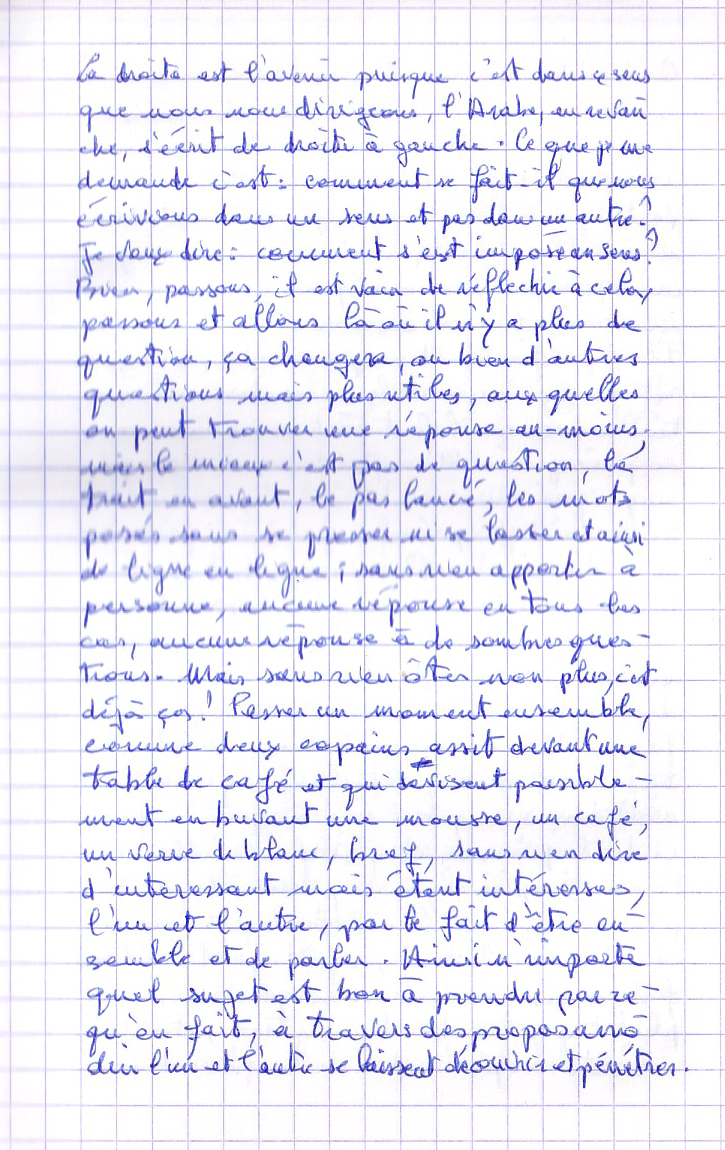 La droite est l'avenir puisque c'est dans ce sens
que nous nous dirigeons, l'Arabe, en revan
che, s'écrit de droite à gauche. Ce que je me
demande c'est : comment se fait-il que nous
écrivions dans un sens et pas dans un autre ?
Je veux dire : comment s'est imposé un sens ?
Bien, passons, il est vain de réflechir à cela,
passons et allons là où il n'y a plus de
question, ça changera, ou bien d'autres
questions mais plus utiles, aux quelles
on peut trouver une réponse au-moins.
mais le mieux c'est pas de question, le
trait en avant, le pas lancé, les mots
posés sans se presser ni se lasser et ainsi
de ligne en ligne ; sans rien apporter à
personne, aucune réponse en tous les
cas, aucune réponse à de sombres ques-
tions. Mais sans rien ôter non plus, c'est
déjà ça ! Passer un moment ensemble,
comme deux copains assit devant une
table de café et qui devisent paisible-
ment en buvant une mousse, un café,
un verre de blanc, bref, sans rien dire
d'intéressant mais étant intéressés,
l'un et l'autre, par le fait d'être en-
semble et de parler. Ainsi n'importe
quel sujet est bon à prendre parce-
qu'en fait, à travers des propos ano
din l'un et l'autre se laissent découvrir et pénétrer.